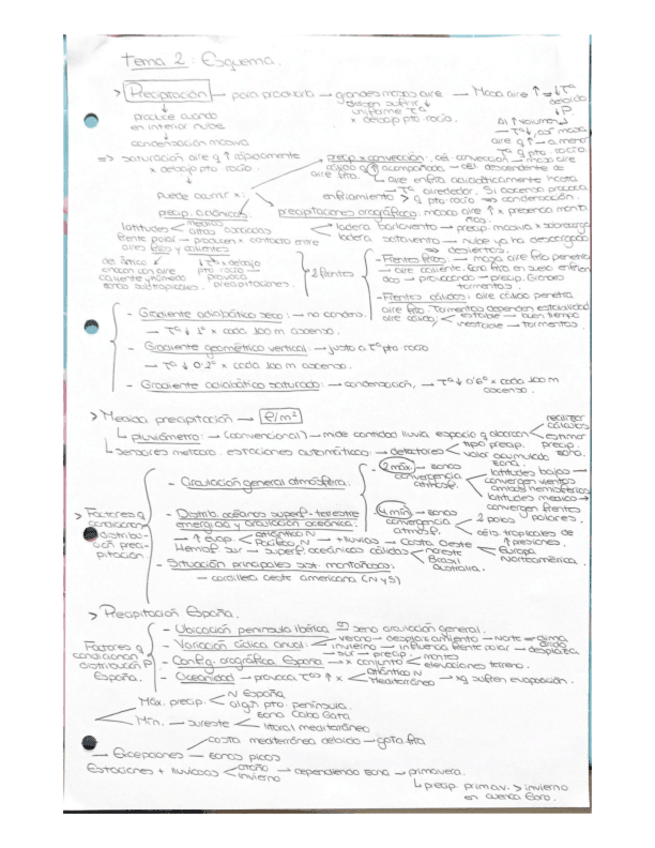 Tema 2: Esquema.
> Precipitación → para producirla → grandes masas aire → Masa aire ↑ → ↓Tª
deben sufrir ↓ debido
uniforme Tª ↓P.
x debajo pto. rocío.
produce cuando
en interior nubes
Al ↑ volumen
→ Tª↓, así masa
condensación masiva
aire q ↑ → a menor
Tª q pto. rocío.
⇒ saturación aire q ↑ rápidamente
x debajo pto. rocío
precip. x convección: cél. convección → masa aire
cálido q ↑ acompañada → cél. descendente de
aire frío.
aire enfría adiabáticamente hasta
→ Tª alrededor. Si ascenso provoca
puede ocurrir x:
enfriamiento > q pto. rocío ⇒ condensación.
precip. ciclónicas
precipitaciones orográficas: masa aire ↑ x presencia montañas.
latitudes < medias
altas
asociadas
ladera barlovento → precip. masiva x sobrecarga
ladera sotavento → nube ya ha descargado
⇒ desiertos.
frente polar → producen x contacto entre
aires fríos y calientes
del ártico
chocan con aire
caliente y húmedo
zonas subtropicales
↓Tª x debajo
pto. rocío →
provoca
precipitaciones.
2 frentes
- Frentes fríos: → masa aire fría penetra
→ aire caliente. Zona fría en suelo enfrían
dos → provocando → precip. Grandes
tormentas.
- Frentes cálidos: aire cálido penetra
aire frío. Tormentas dependen estabilidad
aire cálido: < estable → buen tiempo
inestable → tormentas.
- Gradiente adiabático seco: → no condens.
→ Tª ↓ 1º x cada 100 m ascenso.
- Gradiente geométrico vertical: → justo a Tª pto. rocío
→ Tª ↓ 0'2º x cada 100 m ascenso.
- Gradiente adiabático saturado: → condensación, → Tª ↓ 0'6º x cada 100 m
ascenso.
> Medida precipitación → ℓ/m²
↳ pluviómetro: → (convencional) → mide cantidad lluvia espacio q abarcan
realizar
cálculos
estimar
precip.
zona.
↳ Sensores meteoro. estaciones automáticas: → detectores < tipo precip.
valor acumulado
zona.
> Factores q
condicionan
distribu-
ción preci-
pitación
- Circulación general atmósfera:
- 2 máx. → zonas
convergencia
atmósf.
latitudes bajas →
convergen vientos
ambos hemisferios
latitudes medias →
convergen frentes
polares.
- Distrib. océanos superf. terrestre
energía y circulación oceánica:
- 4 mín. → zonas
convergencia
atmósf.
2 polos
céls. tropicales de
↑ presiones.
→ ↑ evap. < Atlántico N
Pacífico N → + lluvias → Costa Oeste < Europa
Norteamérica.
Hemisf. sur → superf. oceánicas cálidas < noreste
Brasil
Australia.
- Situación principales sist. montañosos:
→ cordillera oeste americana (N y S)
> Precipitación España.
Factores q
condicionan
distribución P
España.
- Ubicación península ibérica seno circulación general.
- Variación cíclica anual: < verano → desplazamiento → Norte = clima
árido
invierno → influencia frente polar → desplaza
→ sur → precip.
- Config. orográfica España → x conjunto < montes
elevaciones terreno.
- Oceanidad → provoca Tªs ↑ x < Atlántico N
Mediterráneo → xq sufren evaporación.
Máx. precip. < N España
algún pto. península.
Mín. → sureste < zona Cabo Gata
litoral mediterráneo
→ Excepciones < costa mediterránea debido → gota fría
zonas picos
Estaciones + lluviosas < otoño
invierno → dependiendo zona → primavera.
↳ precip. primav. > invierno
en cuenca Ebro.